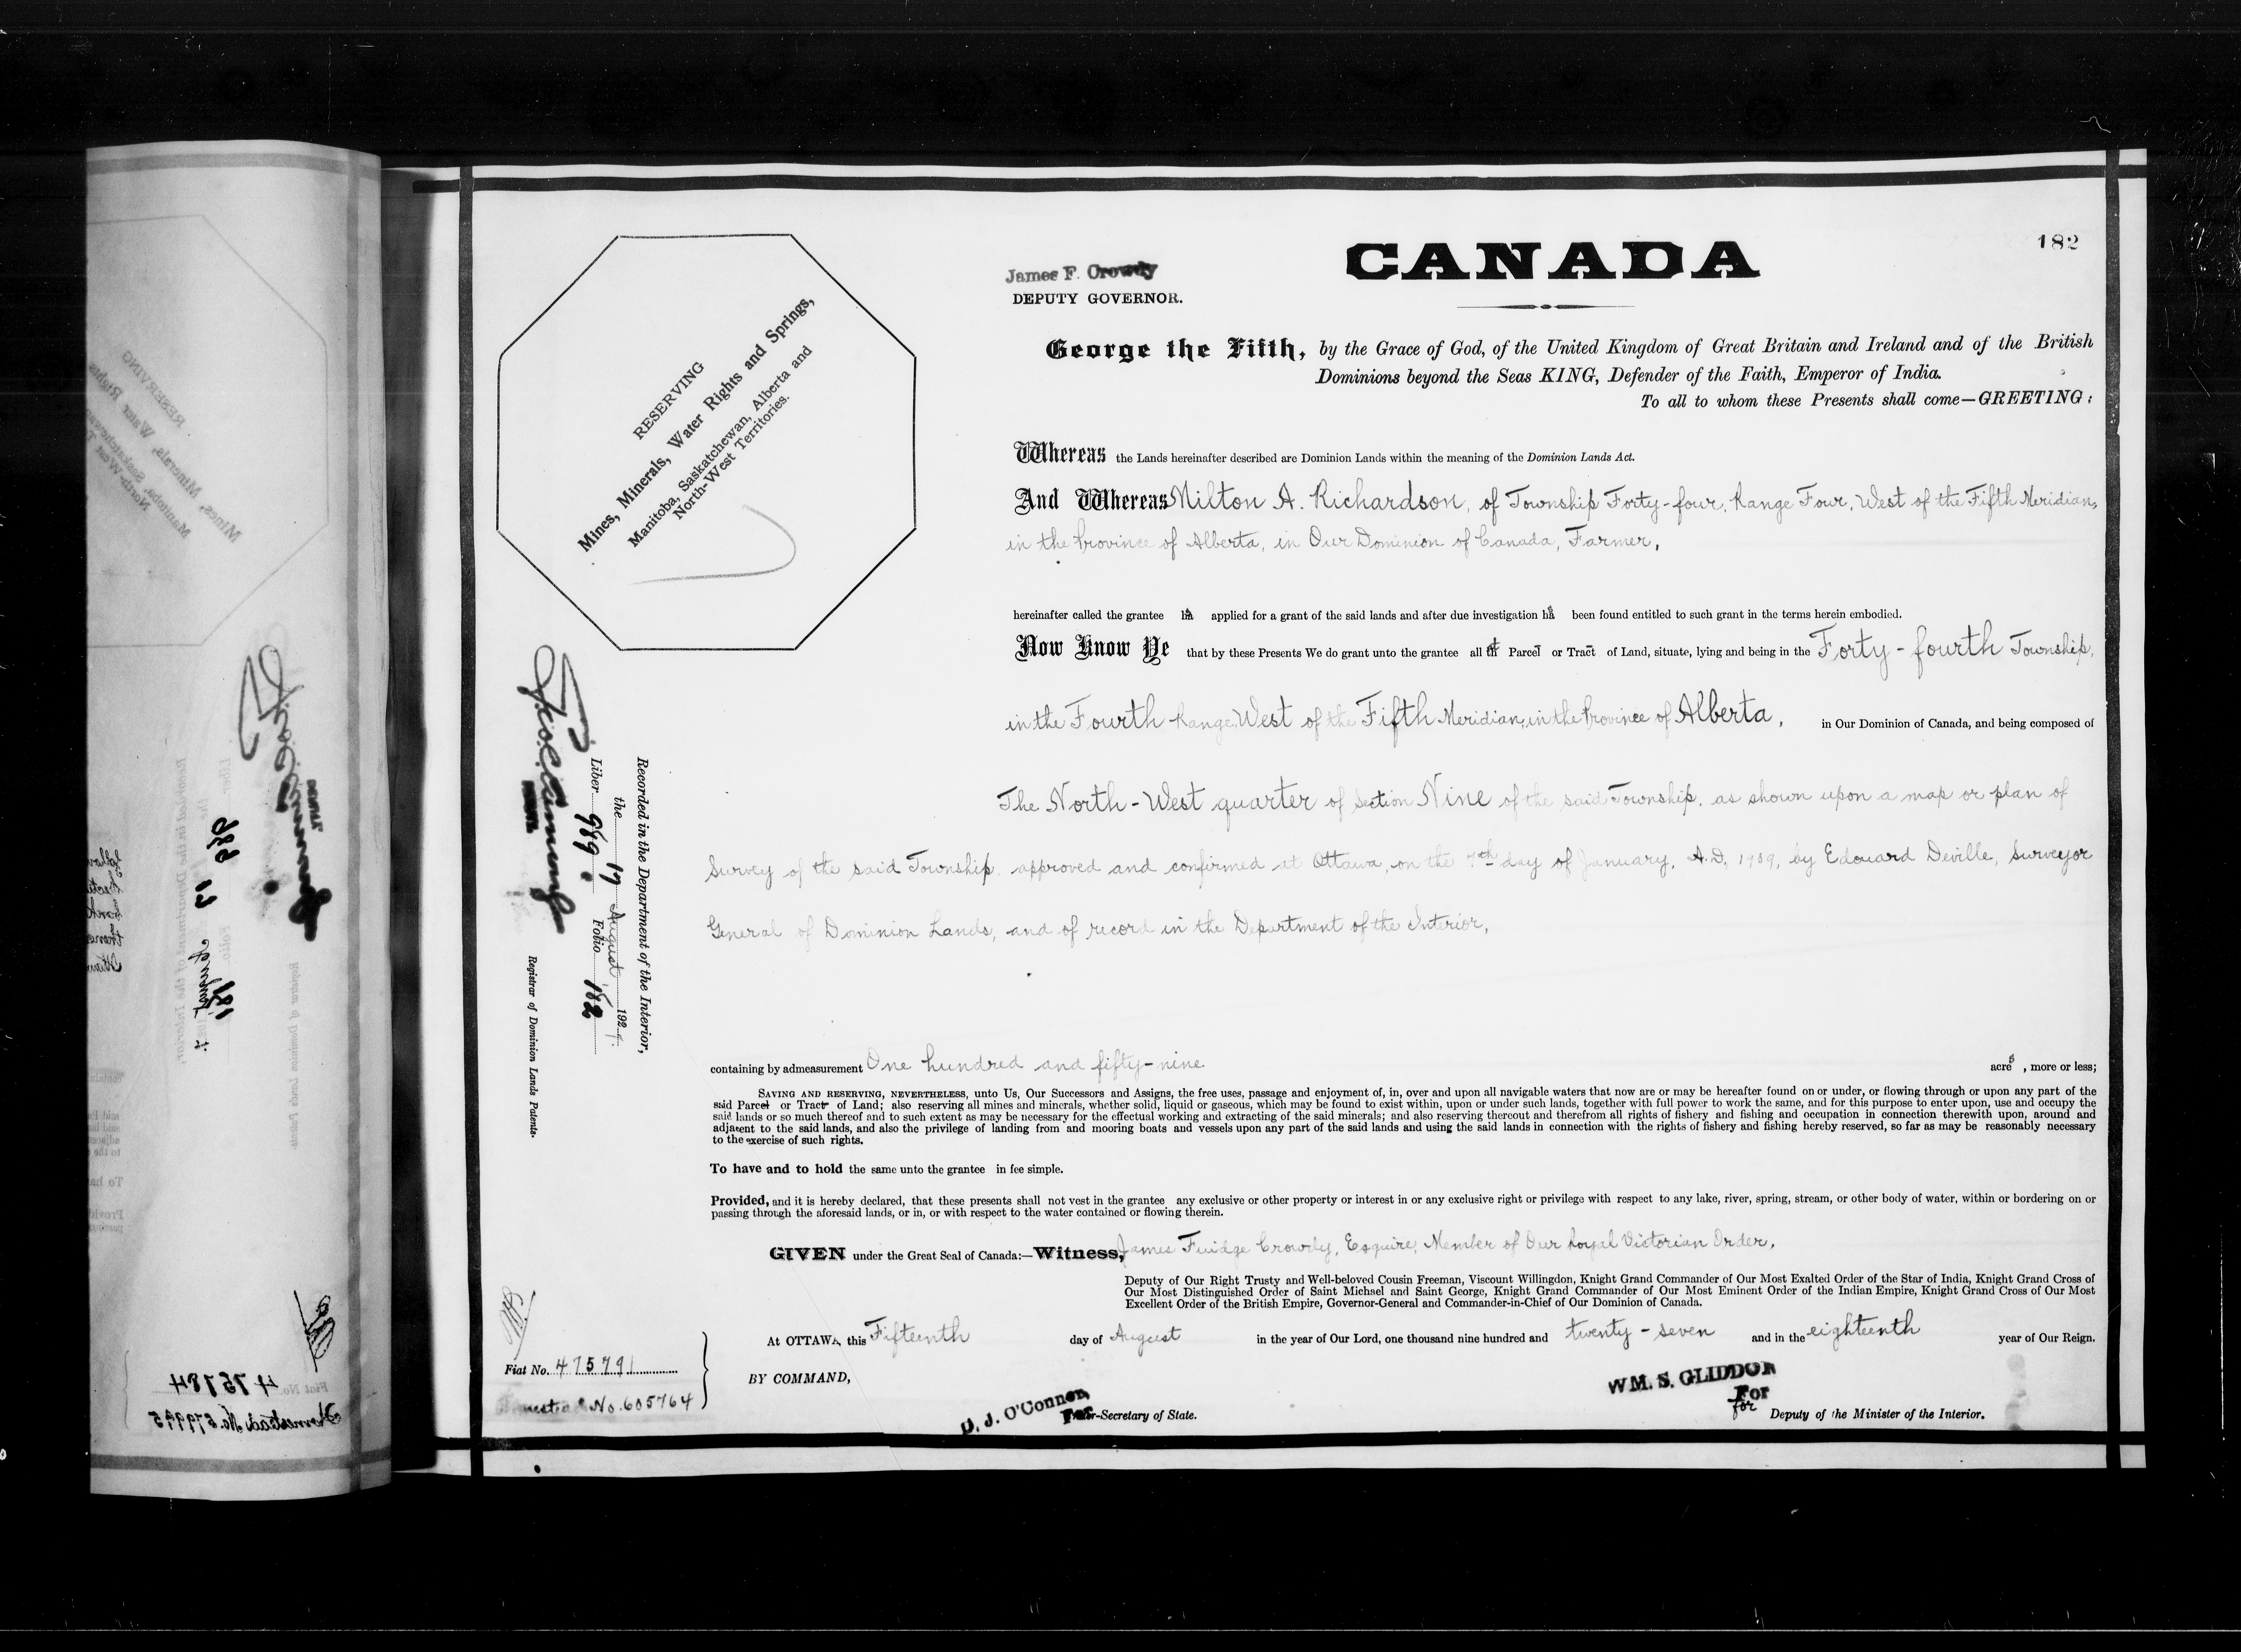 182
CANADA
James F. Crowdy
DEPUTY GOVERNOR.
George the Fifth, by the Grace of God, of the United Kingdom of Great Britain and Ireland and of the British
Dominions beyond the Seas KING, Defender of the Faith, Emperor of India.
To all to whom these Presents shall come—GREETING:
RESERVING
Mines, Minerals, Water Rights and Springs,
Manitoba, Saskatchewan, Alberta and
North-West Territories.
Whereas the Lands hereinafter described are Dominion Lands within the meaning of the Dominion Lands Act.
And Whereas Milton A. Richardson, of Township Forty-four, Range Four, West of the Fifth Meridian,
in the Province of Alberta, in Our Dominion of Canada, Farmer,
hereinafter called the grantee has applied for a grant of the said lands and after due investigation has been found entitled to such grant in the terms herein embodied.
Now Know Ye that by these Presents We do grant unto the grantee all that Parcel or Tract of Land, situate, lying and being in the Forty-fourth Township,
in the Fourth Range, West of the Fifth Meridian, in the Province of Alberta, in Our Dominion of Canada, and being composed of
The North-West quarter of Section Nine of the said Township, as shown upon a map or plan of
Survey of the said Township, approved and confirmed at Ottawa, on the 7th day of January, A.D. 1909, by Edouard Deville, Surveyor
General of Dominion Lands, and of record in the Department of the Interior,
containing by admeasurement One hundred and fifty-nine acres, more or less;
SAVING AND RESERVING, NEVERTHELESS, unto Us, Our Successors and Assigns, the free uses, passage and enjoyment of, in, over and upon all navigable waters that now are or may be hereafter found on or under, or flowing through or upon any part of the
said Parcel or Tract of Land; also reserving all mines and minerals, whether solid, liquid or gaseous, which may be found to exist within, upon or under such lands, together with full power to work the same, and for this purpose to enter upon, use and occupy the
said lands or so much thereof and to such extent as may be necessary for the effectual working and extracting of the said minerals; and also reserving thereout and therefrom all rights of fishery and fishing and occupation in connection therewith upon, around and
adjacent to the said lands, and also the privilege of landing from and mooring boats and vessels upon any part of the said lands and using the said lands in connection with the rights of fishery and fishing hereby reserved, so far as may be reasonably necessary
to the exercise of such rights.
To have and to hold the same unto the grantee in fee simple.
Provided, and it is hereby declared, that these presents shall not vest in the grantee any exclusive or other property or interest in or any exclusive right or privilege with respect to any lake, river, spring, stream, or other body of water, within or bordering on or
passing through the aforesaid lands, or in, or with respect to the water contained or flowing therein.
GIVEN under the Great Seal of Canada:—Witness, James Fuidge Crowdy, Esquire, Member of Our Royal Victorian Order,
Deputy of Our Right Trusty and Well-beloved Cousin Freeman, Viscount Willingdon, Knight Grand Commander of Our Most Exalted Order of the Star of India, Knight Grand Cross of
Our Most Distinguished Order of Saint Michael and Saint George, Knight Grand Commander of Our Most Eminent Order of the Indian Empire, Knight Grand Cross of Our Most
Excellent Order of the British Empire, Governor-General and Commander-in-Chief of Our Dominion of Canada.
At OTTAWA, this Fifteenth day of August in the year of Our Lord, one thousand nine hundred and twenty-seven and in the eighteenth year of Our Reign.
BY COMMAND,
D. J. O'Connor,
For
-Secretary of State.
WM. S. GLIDDON
For
for
Deputy of the Minister of the Interior.
Recorded in the Department of the Interior,
the 17 August 1927.
Liber 989 Folio 182
Registrar of Dominion Lands Patents.
Fiat No. 475791
Homestead No. 605764
Fiat No. 475784
Homestead No. 579995